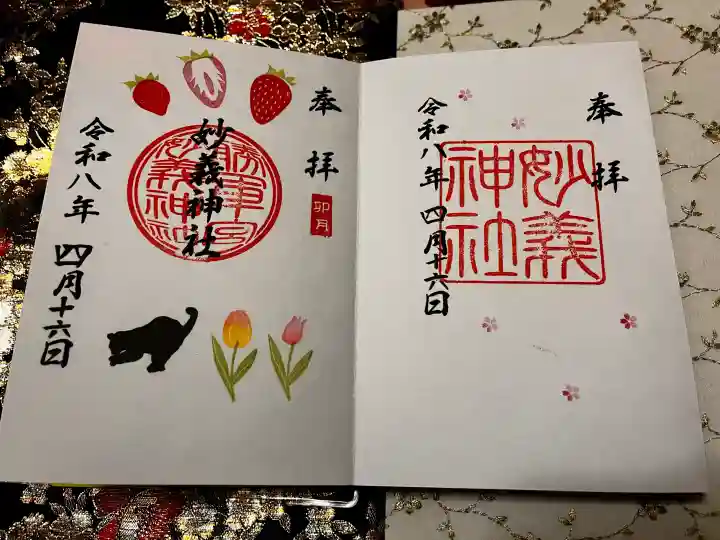 奉拝
卯月
妙義神社
妙義神社
令和八年 四月十六日
奉拝
妙義神社
令和八年 四月十六日